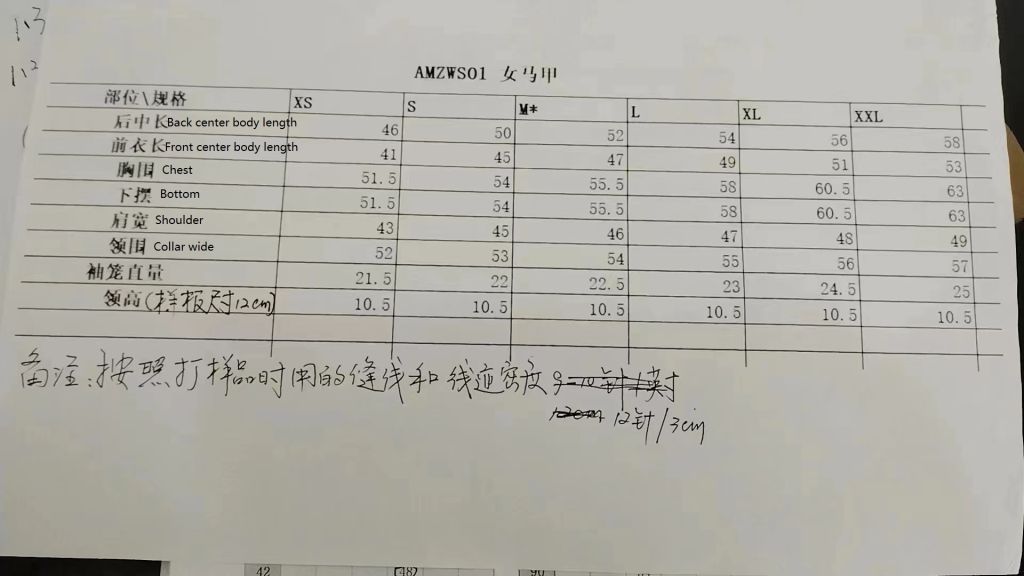 1.3
1.2
AMZWS01 女马甲
部位\规格 XS S M* L XL XXL
后中长Back center body length 46 50 52 54 56 58
前衣长Front center body length 41 45 47 49 51 53
胸围 Chest 51.5 54 55.5 58 60.5 63
下摆 Bottom 51.5 54 55.5 58 60.5 63
肩宽 Shoulder 43 45 46 47 48 49
领围 Collar wide 52 53 54 55 56 57
袖笼直量 21.5 22 22.5 23 24.5 25
领高(样板尺寸12cm) 10.5 10.5 10.5 10.5 10.5 10.5
备注:按照打样品时用的缝线和线迹密度 9-10针/英寸
12cm 12针/3cm
42 (48) 90